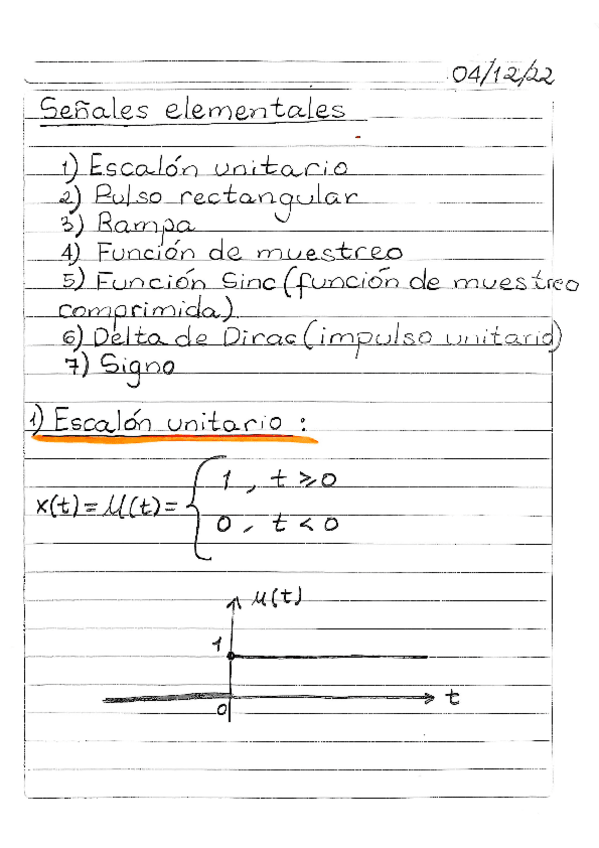 04/12/22
Señales elementales
1) Escalón unitario
2) Pulso rectangular
3) Rampa
4) Función de muestreo
5) Función Sinc (función de muestreo
comprimida)
6) Delta de Dirac (impulso unitario)
7) Signo
1) Escalón unitario :
x(t) = μ(t) = { 1 , t ≥ 0
0 , t < 0
μ(t)
1
t
0